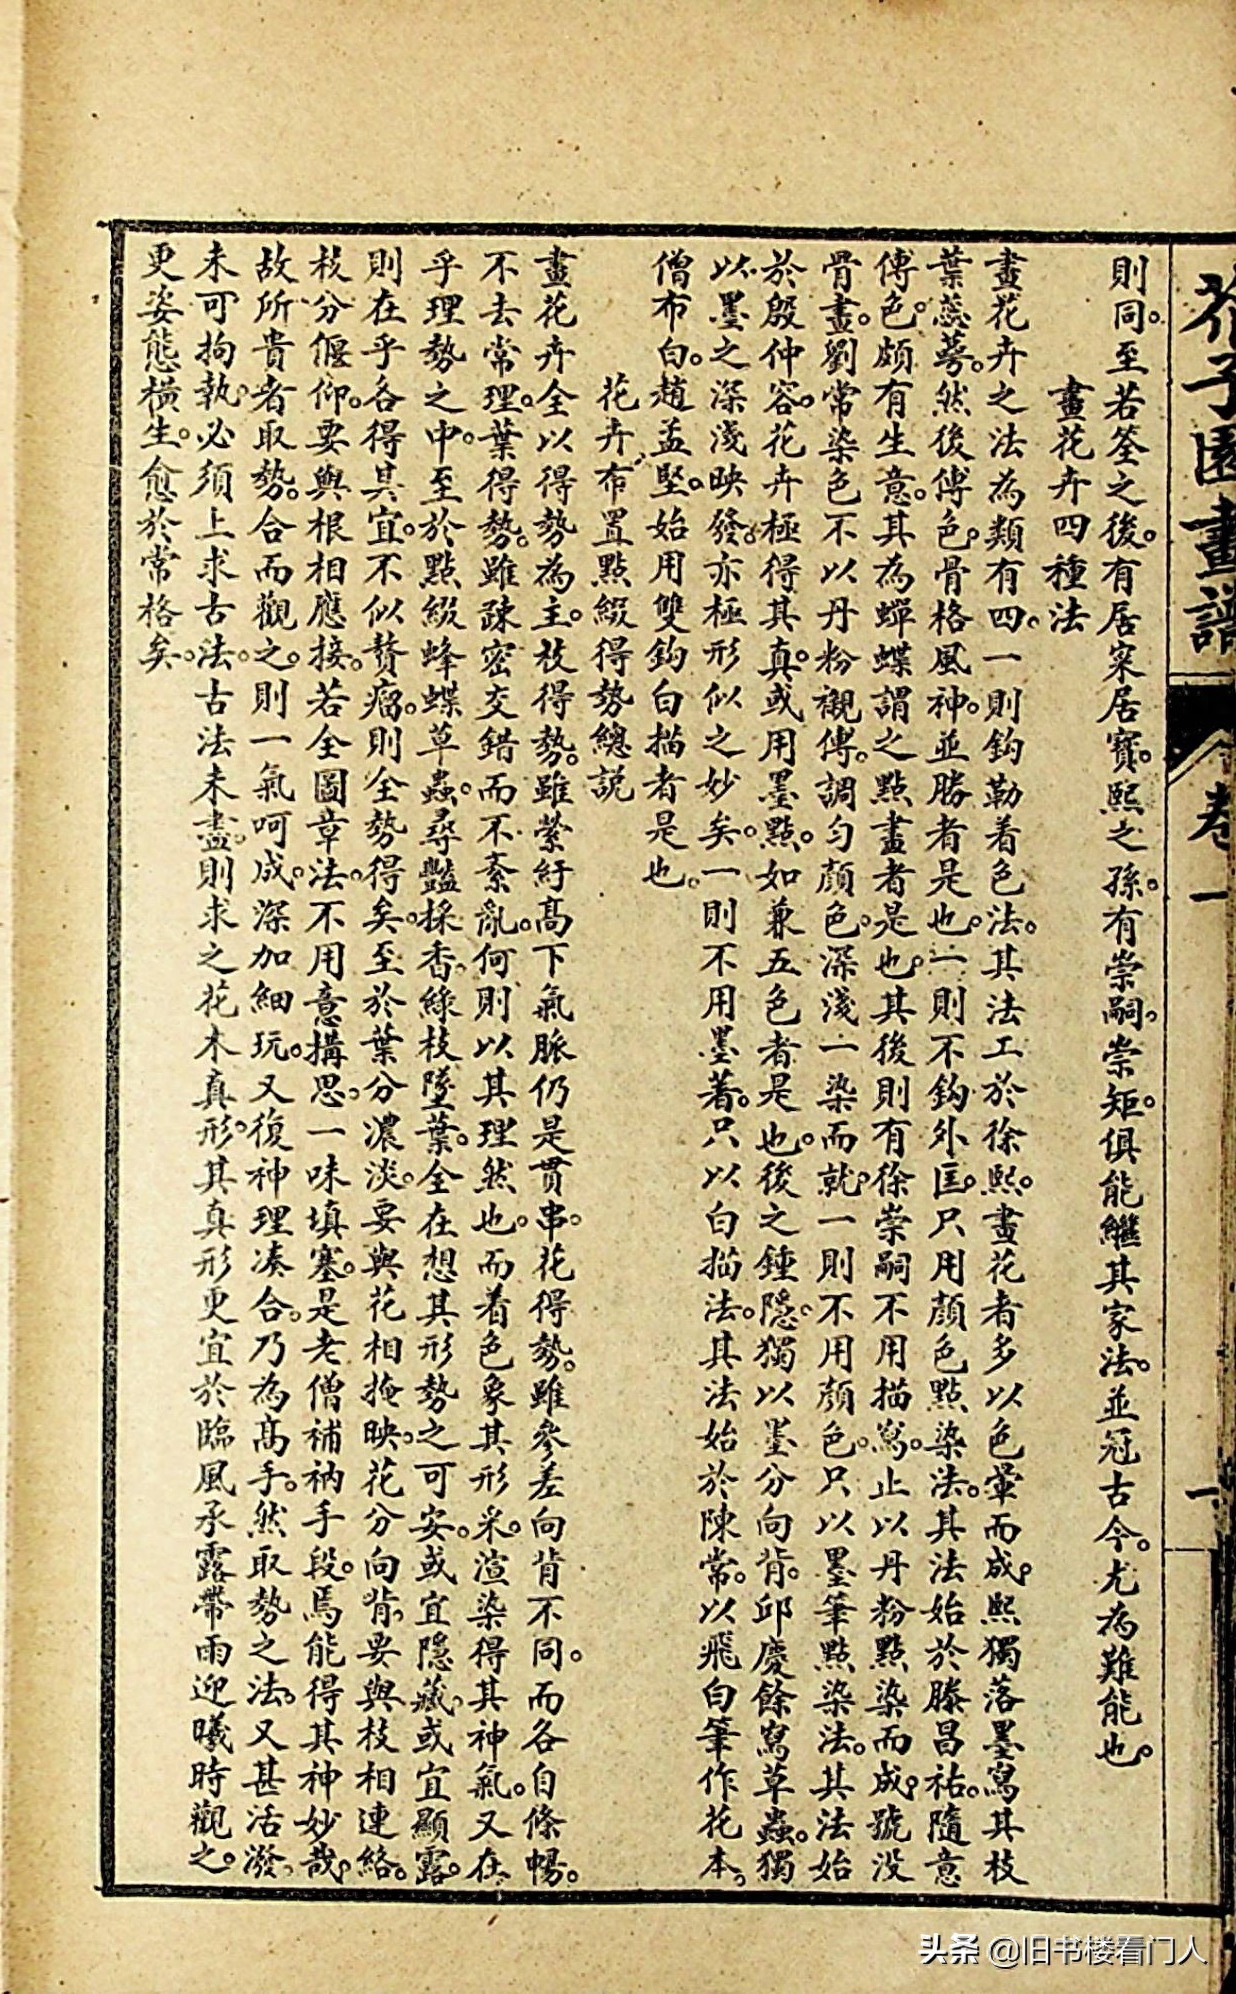 芥子園畫譜 卷一 一
則同。至若筌之後。有居寀居寶。熙之孫。有崇嗣。崇矩。俱能繼其家法。並冠古今。尤為難能也。
畫花卉四種法
畫花卉之法為類有四。一則鈎勒着色法。其法工於徐熙。畫花者多以色暈而成。熙獨落墨寫其枝
葉蕊萼。然後傅色。骨格風神。並勝者是也。一則不鈎外匡。只用顏色點染法。其法始於滕昌祐。隨意
傅色。頗有生意。其為蟬蝶謂之點畫者是也。其後則有徐崇嗣不用描寫。止以丹粉點染而成。號没
骨畫。劉常染色不以丹粉襯傅。調勻顏色。深淺一染而就。一則不用顏色。只以墨筆點染法。其法始
於殷仲容。花卉極得其真。或用墨點。如兼五色者是也。後之鍾隱。獨以墨分向背。邱慶餘寫草蟲。獨
以墨之深淺映發。亦極形似之妙矣。一則不用墨著。只以白描法。其法始於陳常。以飛白筆作花本。
僧布白。趙孟堅。始用雙鈎白描者是也。
花卉布置點綴得勢總説
畫花卉全以得勢為主。枝得勢。雖縈紆高下氣脈仍是貫串。花得勢。雖參差向背不同。而各自條暢。
不去常理。葉得勢。雖疎密交錯而不紊亂。何則以其理然也。而着色象其形采。渲染得其神氣。又在
乎理勢之中。至於點綴蜂蝶草蟲。尋豔採香。緣枝墜葉。全在想其形勢之可安。或宜隱藏。或宜顯露。
則在乎各得其宜。不似贅瘤。則全勢得矣。至於葉分濃淡。要與花相掩映。花分向背。要與枝相連絡。
枝分偃仰。要與根相應接。若全圖章法。不用意搆思。一味填塞。是老僧補衲手段。焉能得其神妙哉。
故所貴者取勢。合而觀之。則一氣呵成。深加細玩。又復神理凑合。乃為高手。然取勢之法。又甚活潑。
未可拘執。必須上求古法。古法未盡。則求之花木真形。其真形更宜於臨風承露帶雨迎曦時觀之。
更姿態橫生。愈於常格矣。
头条 @旧书楼看门人